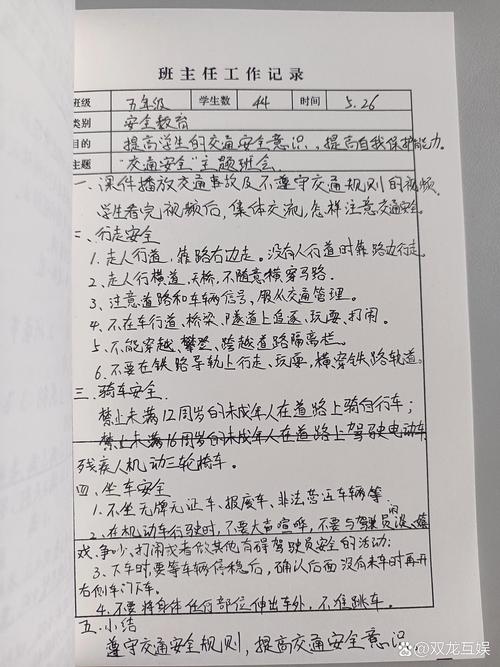 班主任工作记录
班级 五年级 学生数 44 时间 5.26
类别 安全教育
目的 提高学生的交通安全意识、,提高自我保护能力。
主题 “交通安全”主题班会
一、课件播放交通事故及不遵守交通规则的视频。
学生看完视频后,集体交流,怎样注意交通安全。
二、行走安全
1.走人行道,靠路右边走。没有人行道时靠路边行走。
2、走人行横道、天桥,不随意横穿马路。
3、注意道路和车辆信号,服从交通管理。
4、不在车行道、桥梁、隧道上追逐、玩耍、打闹。
5、不能穿越、攀登、跨越道路隔离栏。
6、不要在铁路导轨上行走、玩耍,横穿铁路轨道。
三、骑车安全
禁止未满12周岁的未成年人在道路上骑自行车;
禁止未满16周岁的未成年人在道路上驾驶电动车
残疾人机动三轮椅车。
四、坐车安全
1、不坐无牌无证车、报废车、非法营运车辆等。
2、在机动车行驶时,不要大声喧哗,不要与驾驶员的谈、嬉
戏、争吵、打闹或者做其他有碍驾驶员安全的活动;
3、下车时,要等车辆停稳后,确认后面没有来车时再开
右侧车门下车。
4、不要将身体任何部位伸出车外,不准跳车。
五、小结
遵守交通安全规则,提高交通安全意识。
@双龙互娱